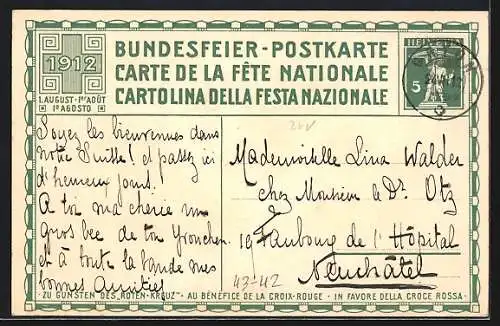 BUNDESFEIER-POSTKARTE
CARTE DE LA FÊTE NATIONALE
CARTOLINA DELLA FESTA NAZIONALE
1912
1. AUGUST - 1ER AOÛT
1º AGOSTO
HELVETIA
5
Soyez les bienvennes dans
notre Suisse! et passez ici
d'heureux jours.
A toi ma chérie un
gros bec de ton
et à toute la bande mes
bonnes Amitiés
Mademoiselle Lina Walder
chez Monsieur le Dr. Otz
19 Faubourg de l'Hôpital
Neuchâtel
43-42
ZU GUNSTEN DES "ROTEN-KREUZ" - AU BÉNÉFICE DE LA CROIX-ROUGE - IN FAVORE DELLA CROCE ROSSA